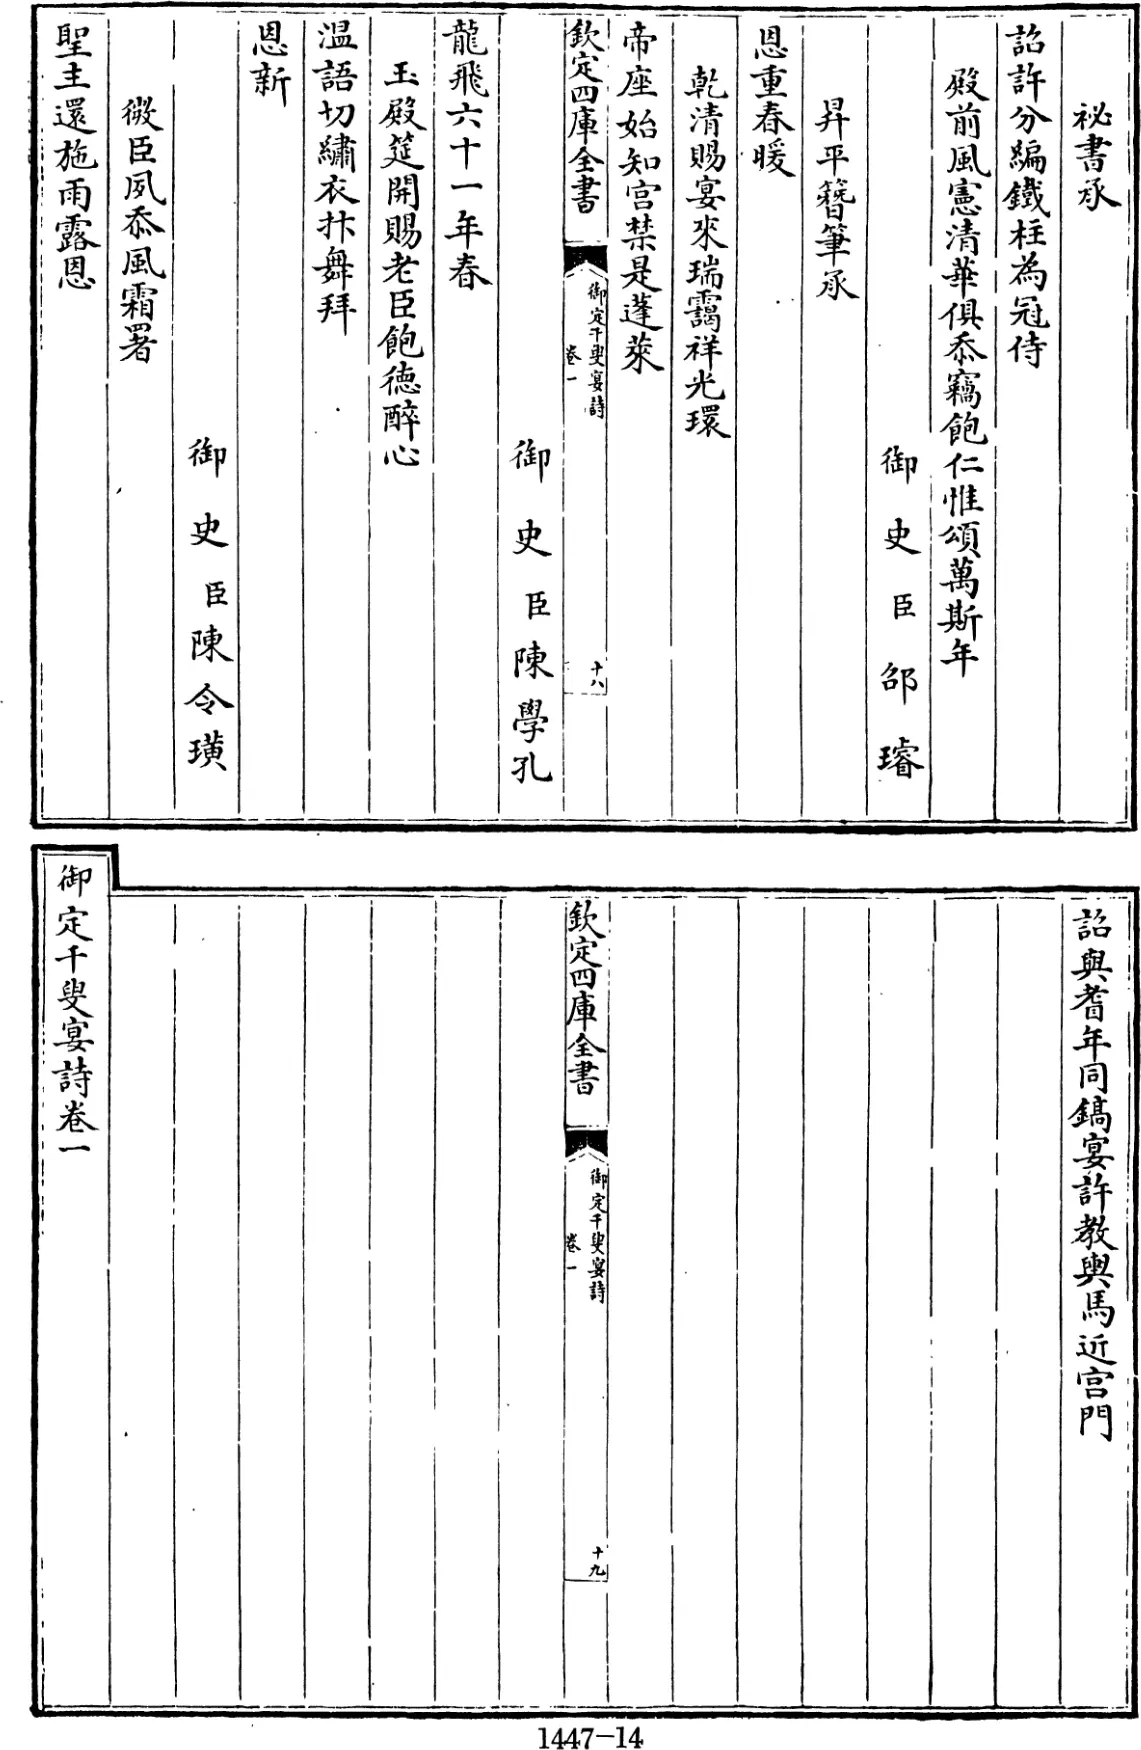 秘書承
詔許分編鐵柱為冠侍
殿前風憲清華俱忝竊飽仁惟頌萬斯年
御史臣邵璿
昇平簪筆承
恩重春暖
乾清賜宴來瑞靄祥光環
帝座始知宫禁是蓬萊
欽定四庫全書
御定千叟宴詩
卷一
十八
御史臣陳學孔
龍飛六十一年春
玉殿筵開賜老臣飽德醉心
温語切繡衣抃舞拜
恩新
御史臣陳令璜
微臣夙忝風霜署
聖主還施雨露恩
詔與耆年同鎬宴許教輿馬近宫門
欽定四庫全書
御定千叟宴詩
卷一
十九
御定千叟宴詩卷一
1447-14